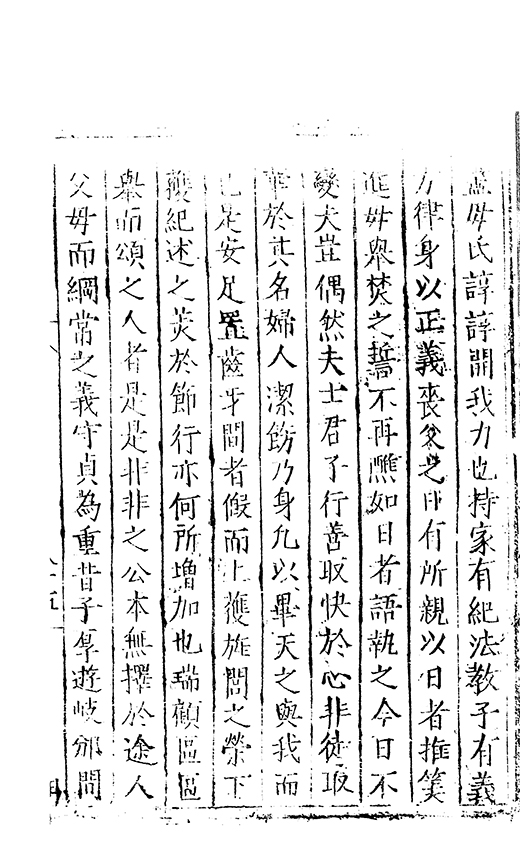 母氏諄諄開我力也持家有紀法教子有義
方律身以正義喪父之日有所親以日者推筭
進母舉焚之誓不再醮如日者語執之今日不
變夫豈偶然夫士君子行善取快於心非徒取
於其名婦人潔飭乃身凡以畢天之與我而
已是安足置齒牙間者假而上獲旌閭之榮下
獲紀述之羙於節行亦何所增加也瑞顧區區
舉而頌之人者是是非非之公本無擇於途人
父母而綱常之義守貞為重昔子厚遊岐邠間